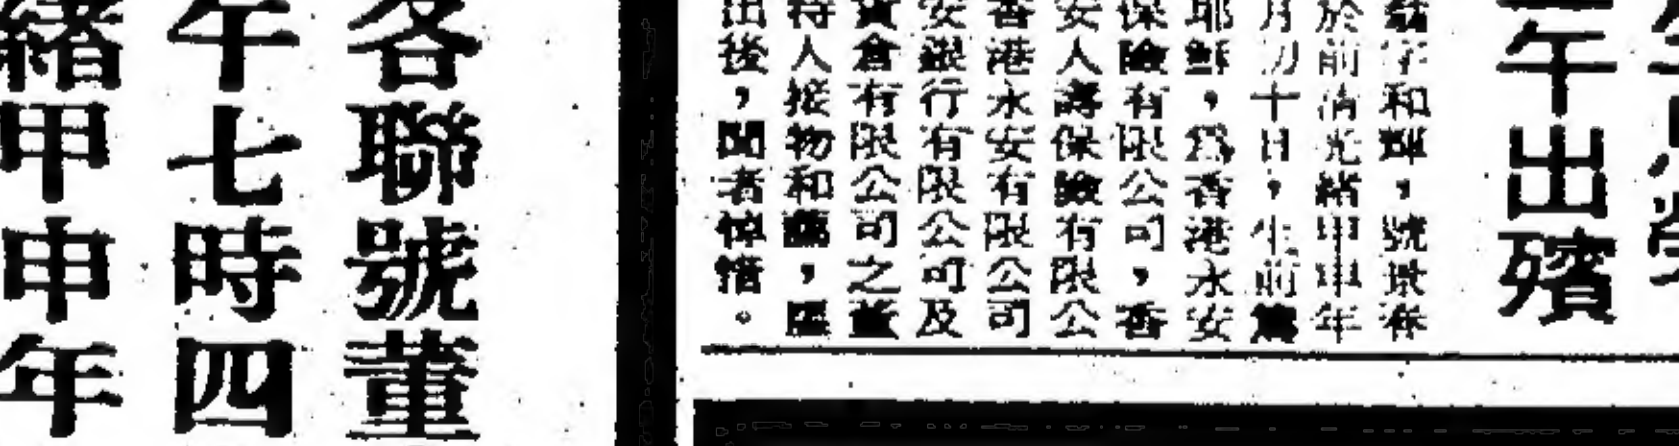 午出殯
翁字和輝，號景春
於前清光緒甲申年
月初十日，生前篤
耶穌，爲香港永安
保險有限公司，香
安人壽保險有限公
香港永安有限公司
安銀行有限公司及
貨倉有限公司之董
待人接物和藹，
出後，聞者悼惜。
各聯號董
午七時四
緒甲申年